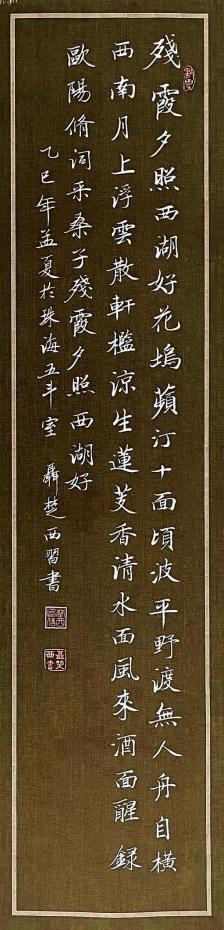 殘霞夕照西湖好花塢蘋汀十面頃波平野渡無人舟自橫
西南月上浮雲散軒檻涼生蓮芰香清水面風來酒面醒 錄
歐陽脩词采桑子殘霞夕照西湖好
乙巳年孟夏於珠海五斗室 聶楚西習書